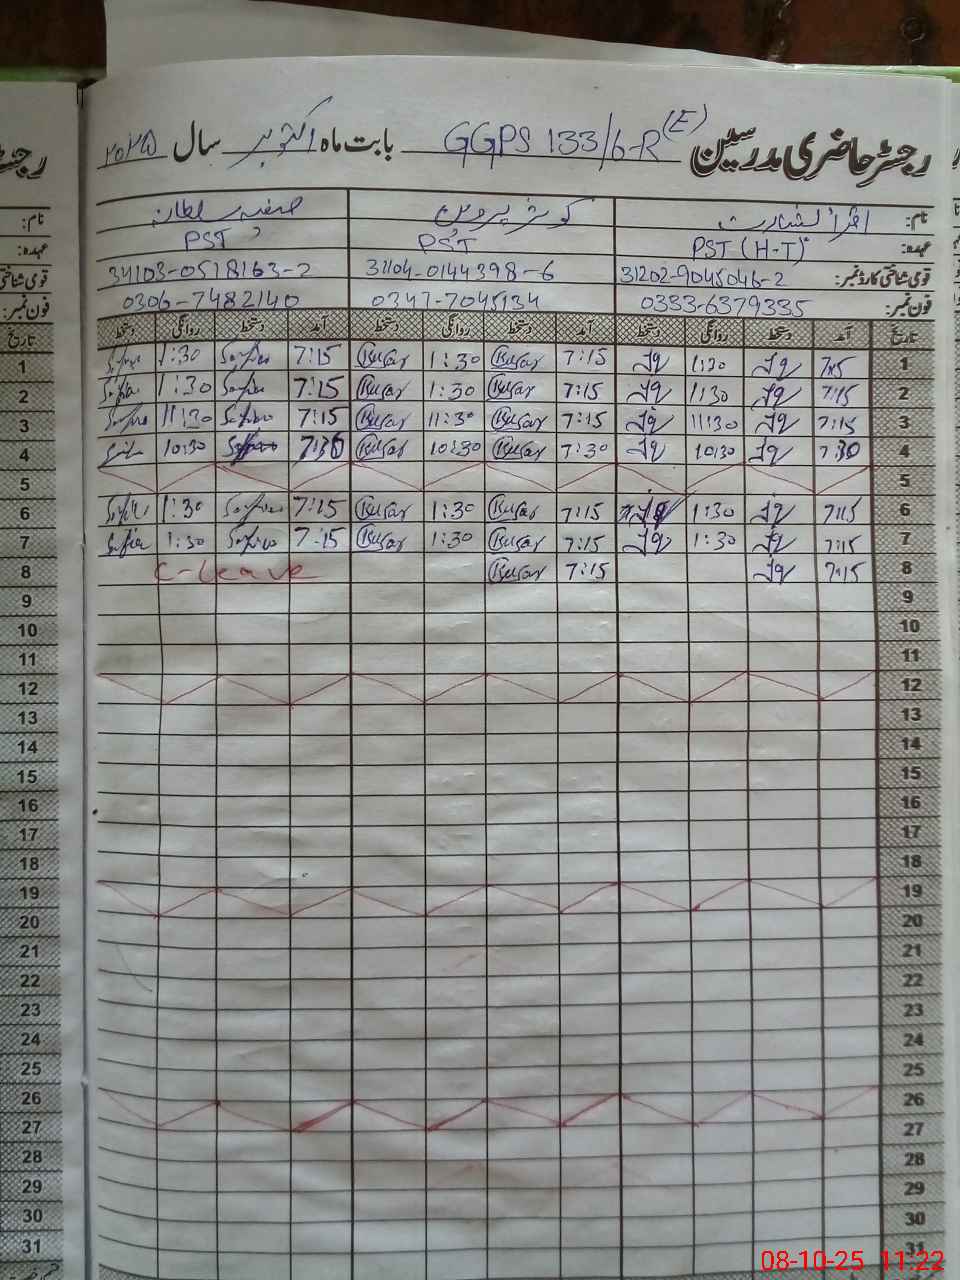 رجسٹر حاضری مدرسین GGPS 133/6-R (E) بابت ماہ اکتوبر سال ۲۰۲۵
نام: اقراء بشارت کوثر پروین صفیہ سلطانہ
عہدہ: PST (H-T) PST PST
قومی شناختی کارڈ نمبر: 31202-9045046-2 31104-0144398-6 31103-0518163-2
فون نمبر: 0333-6379335 0347-7045134 0306-7482140
تاریخ آمد دستخط روانگی دستخط آمد دستخط روانگی دستخط آمد دستخط روانگی دستخط
1 7:15 Iq 1:30 Iq 7:15 Kusar 1:30 Kusar 7:15 Safia 1:30 Safia
2 7:15 Iq 1:30 Iq 7:15 Kusar 1:30 Kusar 7:15 Safia 1:30 Safia
3 7:15 Iq 11:30 Iq 7:15 Kusar 11:30 Kusar 7:15 Safia 11:30 Safia
4 7:30 Iq 10:30 Iq 7:30 Kusar 10:30 Kusar 7:30 Safia 10:30
5
6 7:15 Iq 1:30 Iq 7:15 Kusar 1:30 Kusar 7:15 Safia 1:30 Safia
7 7:15 Iq 1:30 Iq 7:15 Kusar 1:30 Kusar 7:15 Safia 1:30 Safia
8 7:15 Iq 7:15 Kusar C-Leave
9
10
11
12
13
14
15
16
17
18
19
20
21
22
23
24
25
26
27
28
29
30
31
08-10-25 11:22